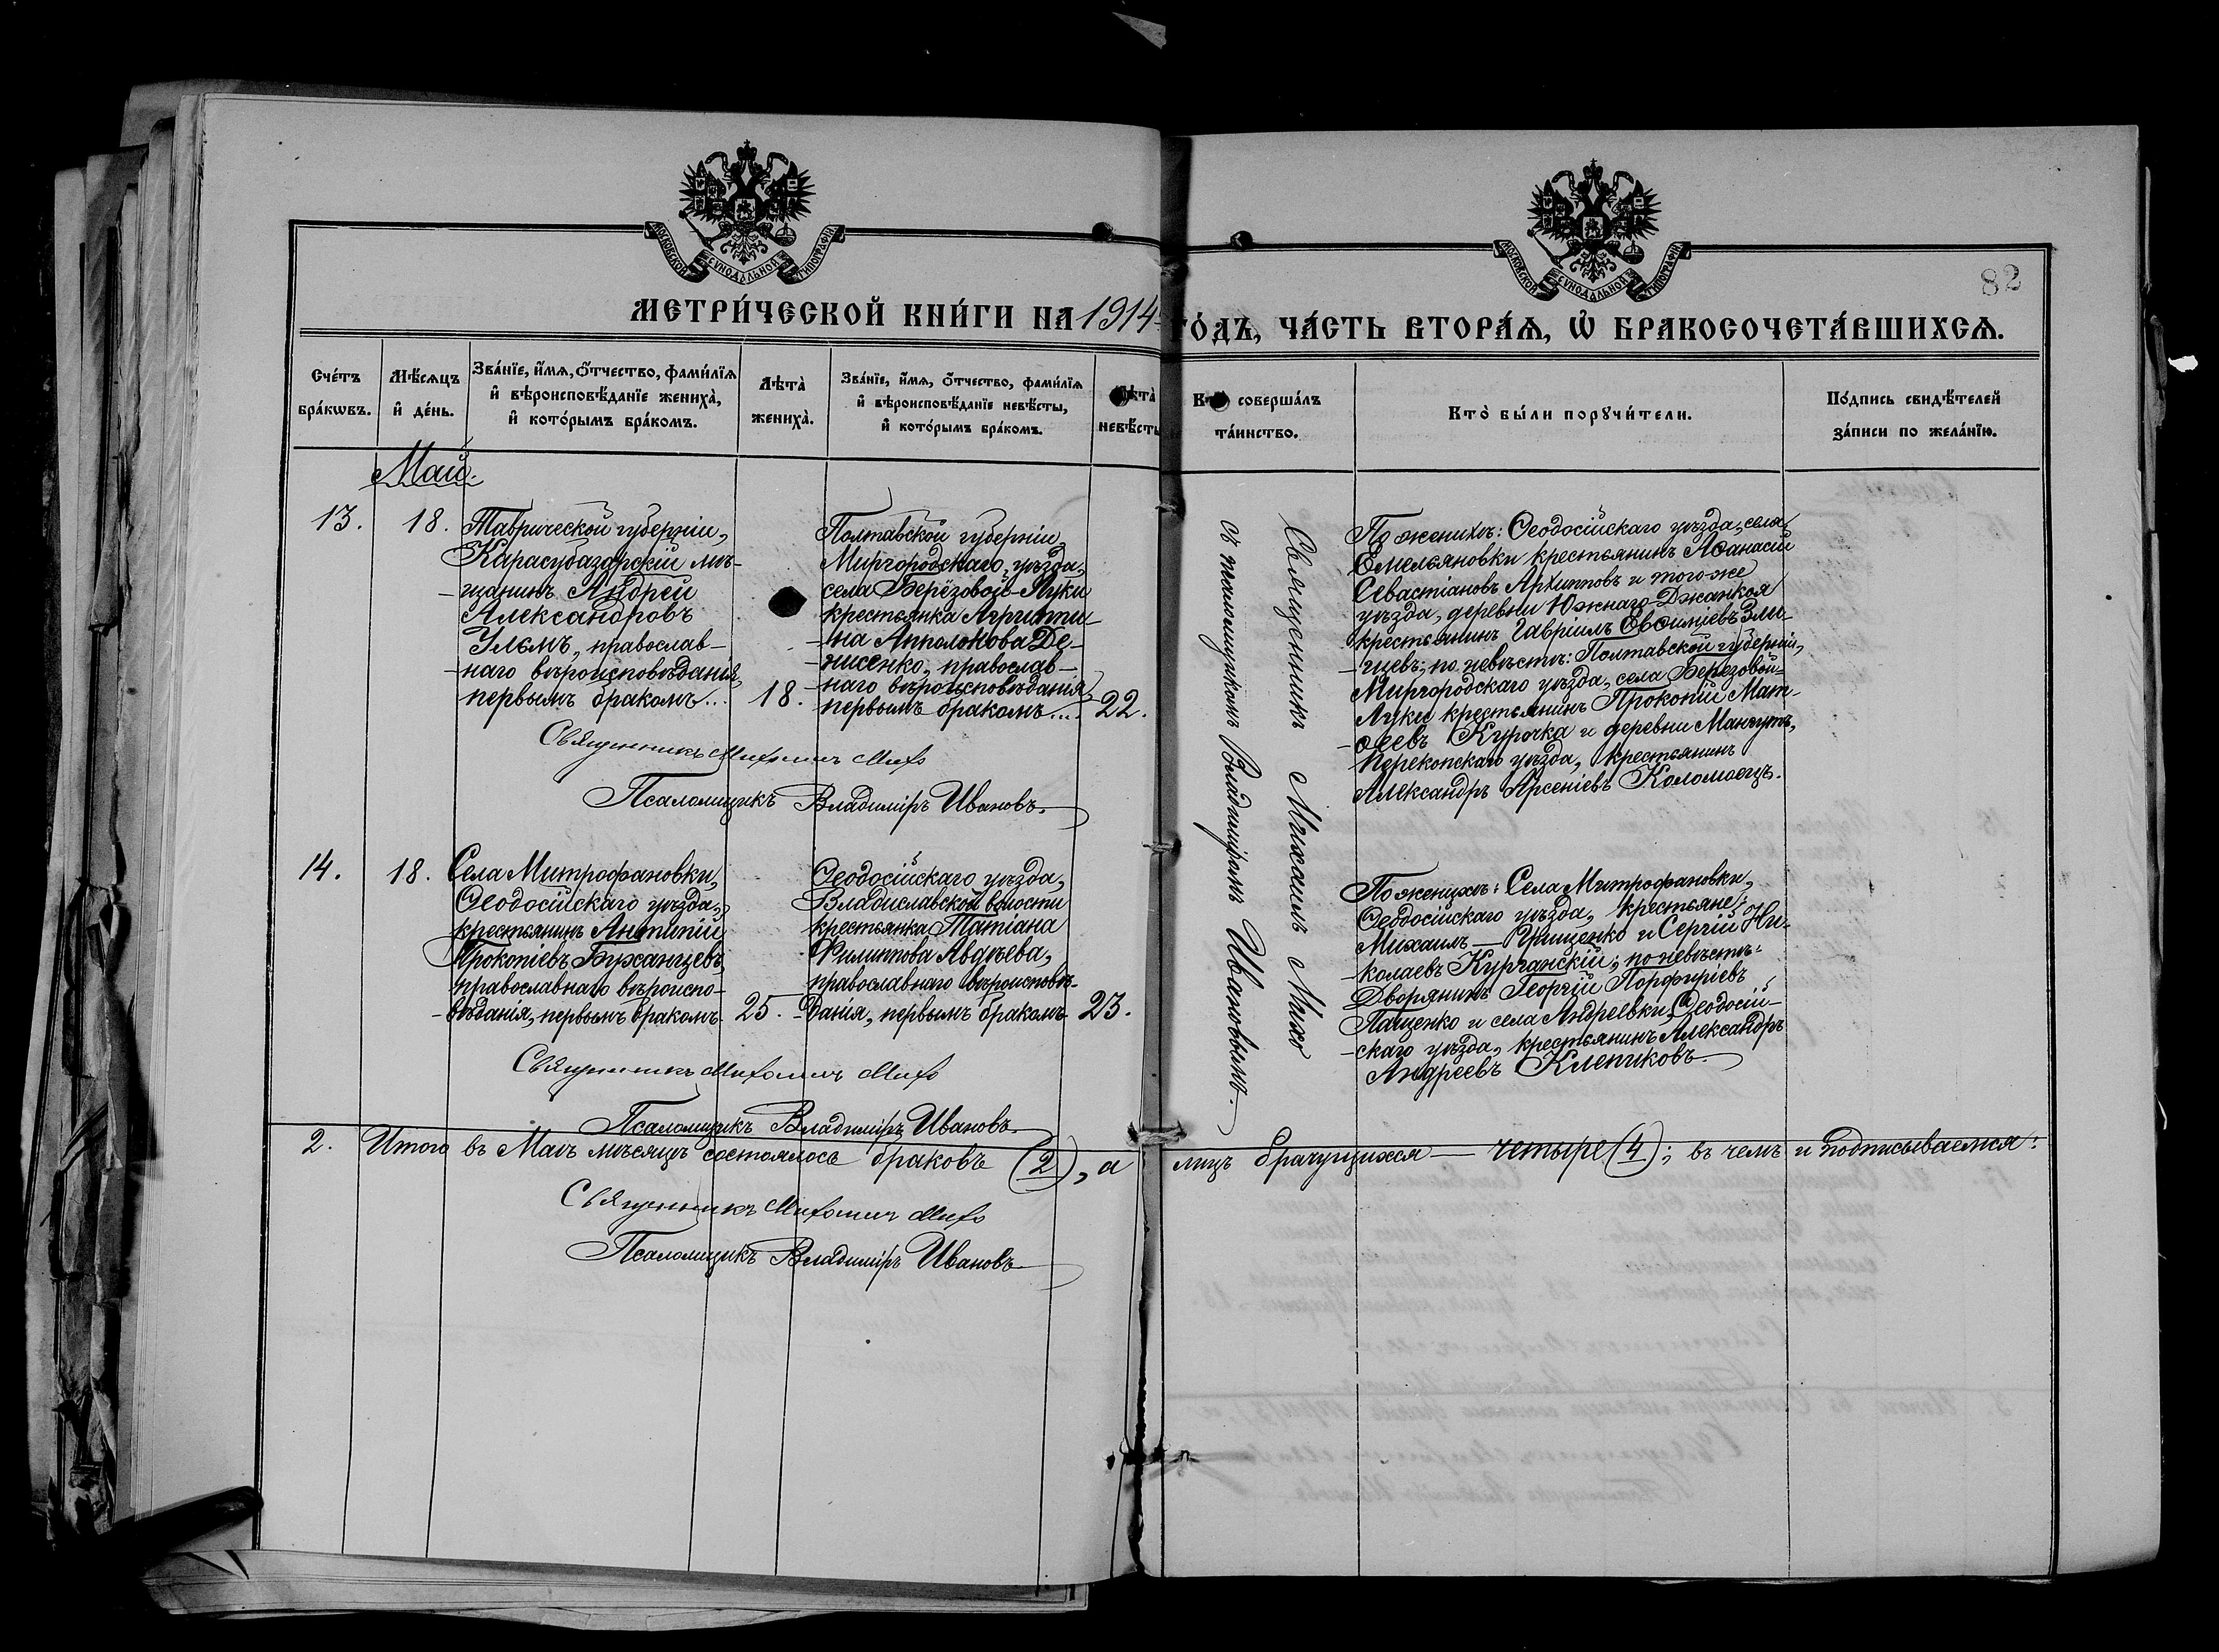 МОСКОВСКОЙ СѴНОДАЛЬНОЙ ТИПОГРАФІИ
МОСКОВСКОЙ СѴНОДАЛЬНОЙ ТИПОГРАФІИ
82
МЕТРИ́ЧЕСКОЙ КНИ́ГИ НА 1914 ГО́ДЪ, ЧА́СТЬ ВТОРА́Ѧ, Ѡ҆ БРАКОСОЧЕТА́ВШИХСѦ.
Сче́тъ
бра́кѡвъ.
Мѣ́сѧцъ
и҆ де́нь.
Зва́нїе, и҆́мѧ, ѻ҆́тчество, фами́лїѧ
и҆ вѣроисповѣ́данїе жениха̀,
и҆ кото́рымъ бра́комъ.
Лѣта̀
жениха̀.
Зва́нїе, и҆́мѧ, ѻ҆́тчество, фами́лїѧ
и҆ вѣроисповѣ́данїе невѣ́сты,
и҆ кото́рымъ бра́комъ.
Лѣта̀
невѣ́сты
Кто̀ соверша́лъ
та́инство.
Кто̀ бы́ли порꙋчи́тели.
По́дпись свидѣ́телей
за́писи по жела́нїю.
Май.
13.
18.
Таврической губерніи,
Карасубазарскій мѣ-
-щанинъ Андрей
Александровъ
Улемъ, православ-
-наго вѣроисповѣданія,
первымъ бракомъ...
18.
Полтавской губерніи,
Миргородскаго уѣзда,
села Берёзовой-Луки
крестьянка Агриппи-
-на Апполонова Де-
-нисенко, православ-
-наго вѣроисповѣданія,
первымъ бракомъ....
22.
Священникъ Михаилъ Михо
съ псаломщикомъ Владиміромъ Ивановымъ.
По женихѣ: Ѳеодосійскаго уѣзда, села
Емельяновки крестьянинъ Аѳанасій
Севастіановъ Архиповъ и того-же
уѣзда, деревни Южнаго Джанкоя
крестьянинъ Гавріилъ Евѳиміевъ Зми-
-щевъ; по невѣстѣ: Полтавской губерніи,
Миргородскаго уѣзда, села Березовой-
Луки крестьянинъ Прокопій Мат-
-ѳеевъ Курочка и деревни Мангутъ,
Перекопскаго уѣзда, крестьянинъ
Александръ Арсеніевъ Коломоецъ.
Священникъ Михаилъ Михо
Псаломщикъ Владиміръ Ивановъ.
14.
18.
Села Митрофановки,
Ѳеодосійскаго уѣзда,
крестьянинъ Антипій
Прокопіевъ Бужанцевъ,
православнаго вѣроиспо-
-вѣданія, первымъ бракомъ.
25.
Ѳеодосійскаго уѣзда,
Владиславской волости
крестьянка Татіана
Филиппова Авдѣева,
православнаго вѣроисповѣ-
-данія, первымъ бракомъ
23.
По женихѣ: Села Митрофановки,
Ѳеодосійскаго уѣзда, крестьяне:
Михаилъ — Грищенко и Сергій Ни-
-колаевъ Курганскій; по невѣстѣ:
Дворянинъ Георгій Порфиріевъ
Пащенко и села Андреевки, Ѳеодосій-
-скаго уѣзда, крестьянинъ Александръ
Андреевъ Клепиковъ.
Священникъ Михаилъ Михо
Псаломщикъ Владиміръ Ивановъ.
2. Итого въ Маѣ мѣсяцѣ состоялось браковъ (2), а лицъ брачущихся — четыре (4); въ чемъ и подписываемся:
Священникъ Михаилъ Михо
Псаломщикъ Владиміръ Ивановъ